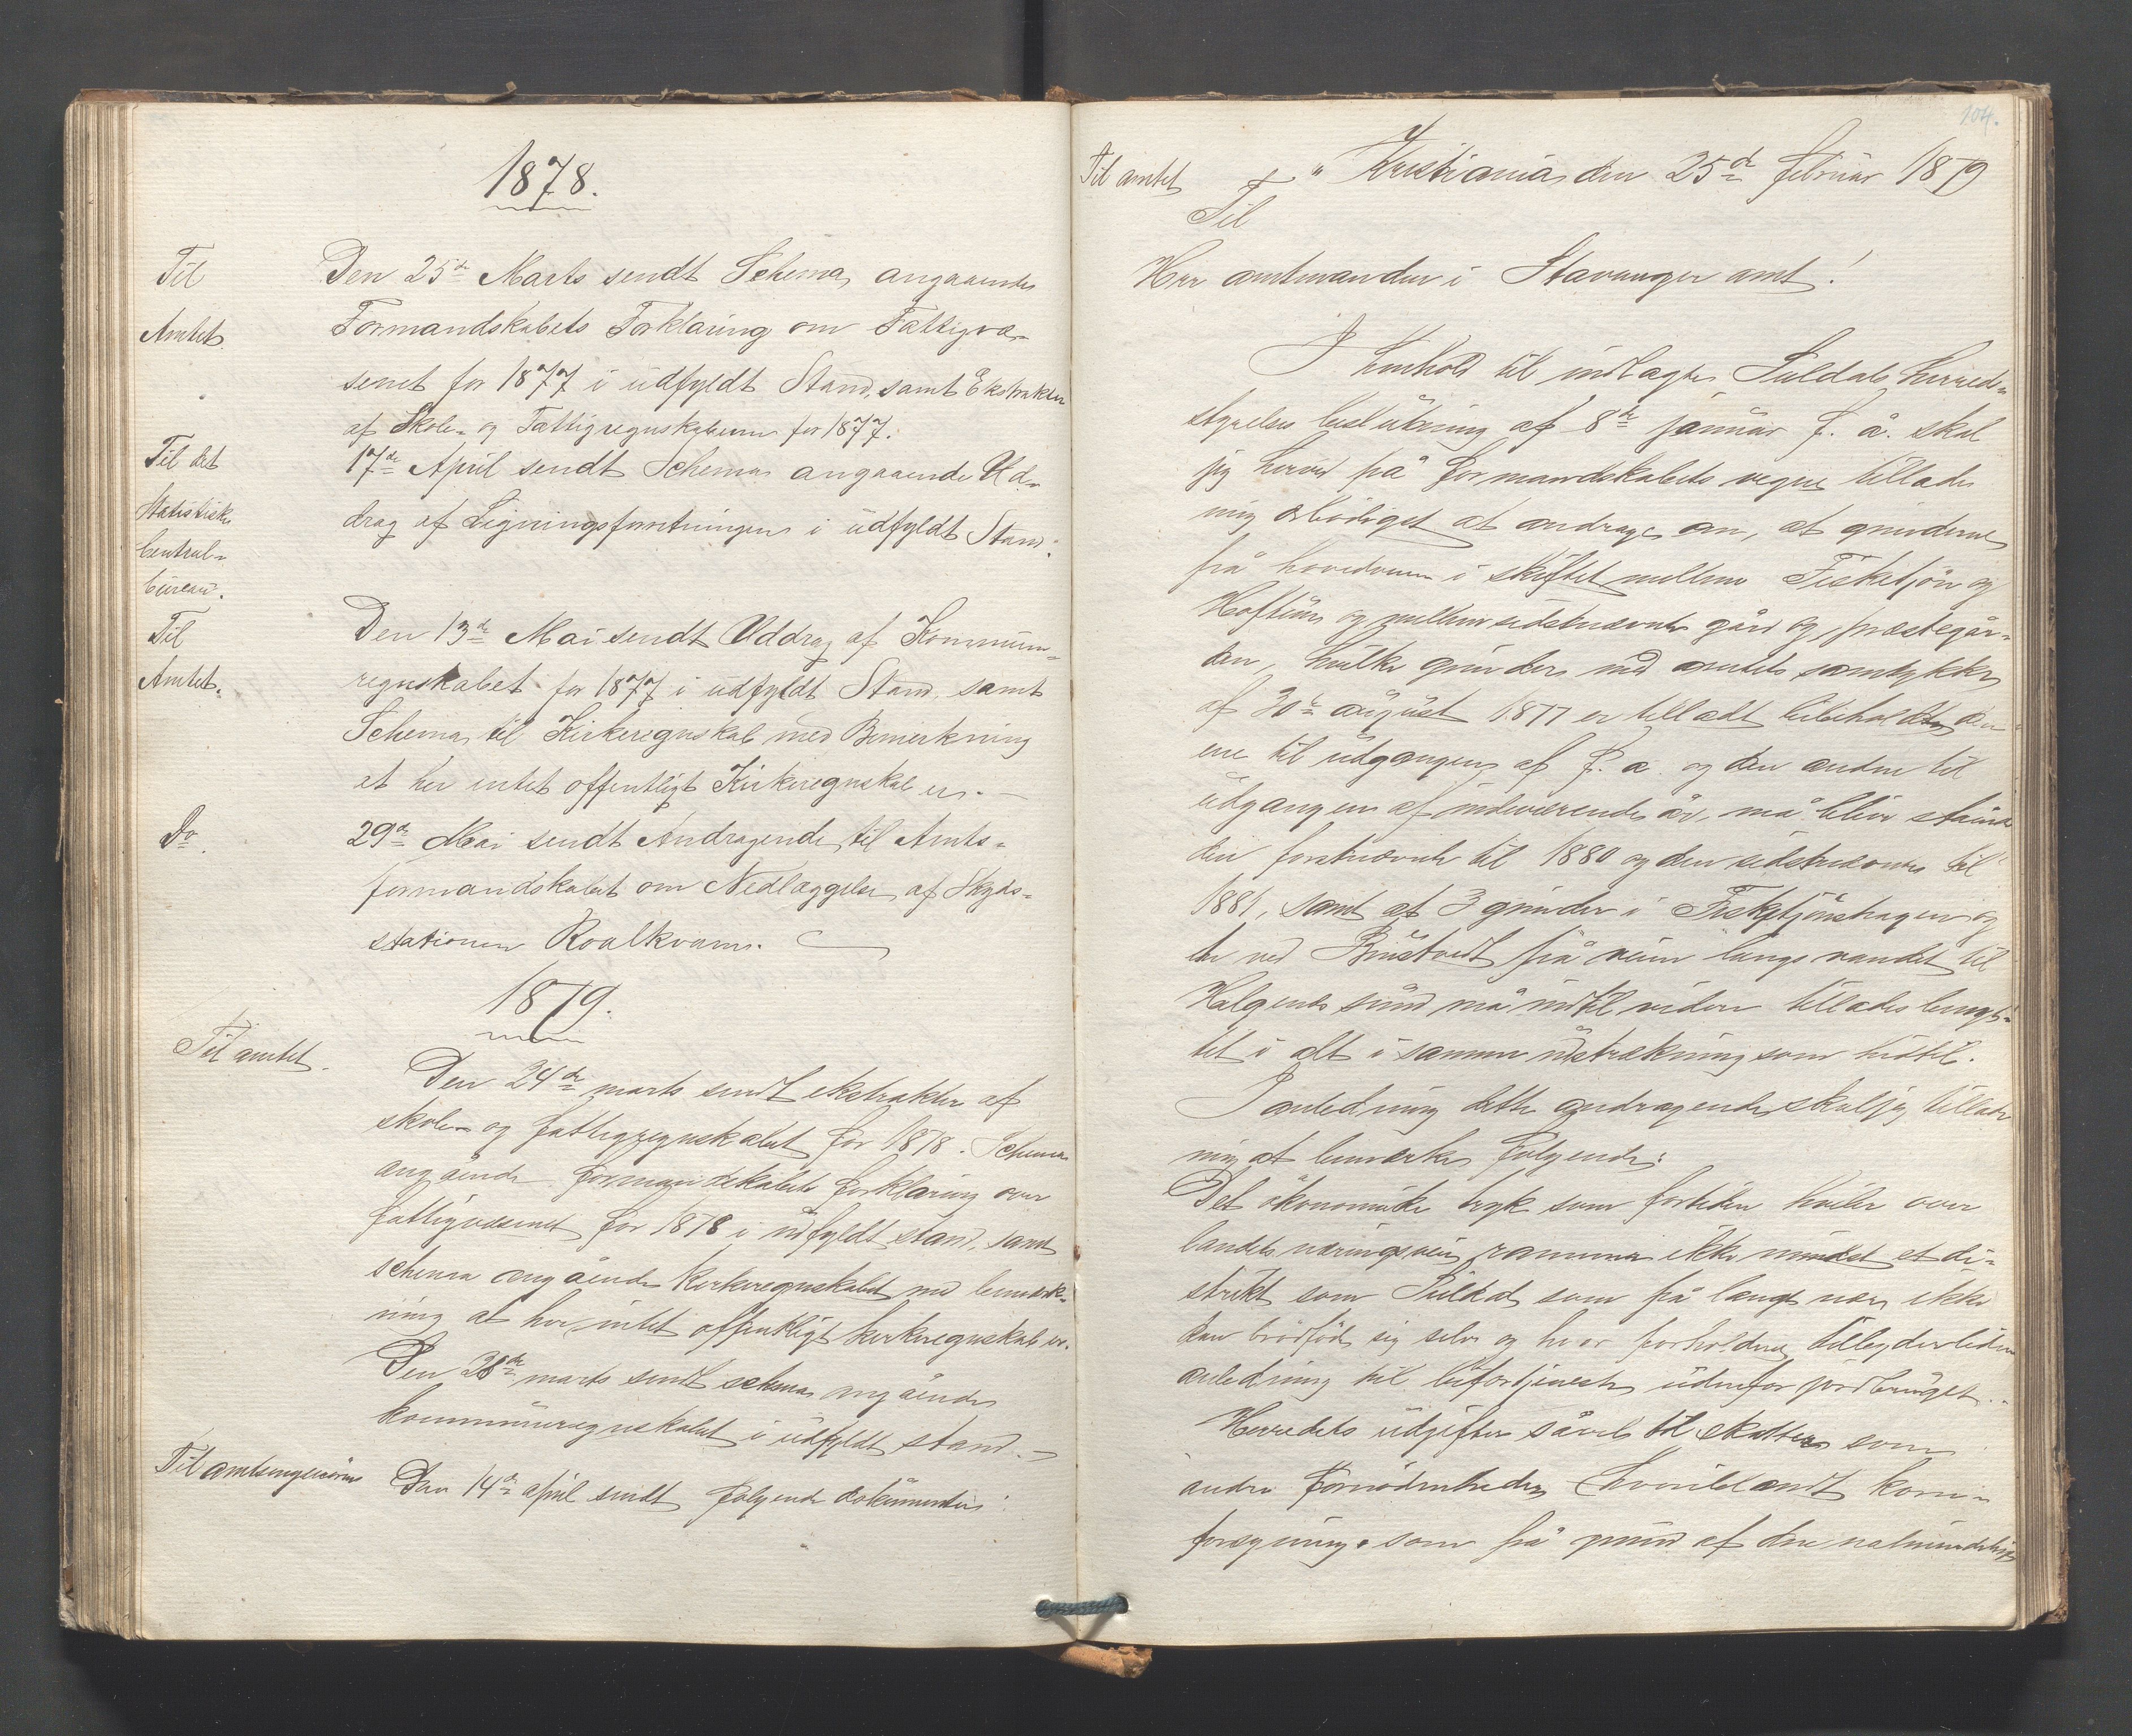 1878.
Til
Amtet.
Den 25de Marts sendt Schema angaaende
Formandskabets Forklaring om Fattigvæ-
senet for 1877 i udfyldt Stand, samt Ekstrakter
af Skole- og Fattigregnskaberne for 1877.
Til det
Statistiske
Central-
bureau.
17de April sendt Schema angaaende Ud-
drag af Ligningsforretningen i udfyldt Stand.
Til
Amtet.
Den 13de Mai sendt Uddrag af Kommune-
regnskabet for 1877 i udfyldt Stand, samt
Schema til Kirkeregnskab med Bemerkning
at her intet offentligt Kirkeregnskab er.
Do.
29de Mai sendt Andragende til Amts-
formandskabet om Nedlæggelse af Skyds-
stationen Roalkvam.
1879.
Til amtet.
Den 24de marts sendt ekstrakter af
skole- og fattigregnskabet for 1878. Schema
angående formandskabets forklaring over
fattigvæsenet for 1878 i udfyldt stand, samt
schema angående kirkeregnskabet med bemærk-
ning at her intet offentligt kirkeregnskab er.
Den 28de marts sendt schema angående
kommuneregnskabet i udfyldt stand.
Til amtsingeniøren
Den 14de april sendt følgende dokumenter:
104.
Til amtet
"Kristiania den 25de februar 1879
Til
Herr amtmanden i Stavanger amt!
I henhold til indlagte Suldals herreds-
styrelses beslutning af 8de januar f. å. skal
jeg herved på formandskabets vegne tillade
mig ærbødigst at andrage om, at grinderne
på hovedveien i skiftet mellem Fisketjøn og
Hoftun og mellem sidstnævnte gård og prestegår-
den, hvilke grinder med amtets samtykke
af 30te august 1877 er tilladt bibeholdt den
ene til udgangen af f. a. og den anden til
udgangen af indeværende år, må blive stående
den førstnævnte til 1880 og den sidstnævnte til
1881, samt at 3 grinder i Fisketjønshagen og
ved fra veien langs vandet til
Helgenes sund må indtil videre tillades benyt-
tet i alt i samme udstrækning som hidtil.
I anledning dette andragende skal jeg tillade
mig at bemærke følgende:
Det økonomiske tryk som fortiden hviler over
landets næringsveie rammer ikke mindst et di-
strikt som Suldal som på langt nær ikke
kan brødføde sig selv og hvor forholdene tilbyder liden
anledning til bifortjeneste udenfor jordbruget.
Herredets udgifter såvel til skatter som
andre fornødenheder hvoriblandt korn-
forsyning, som på grund af den ualmindelige